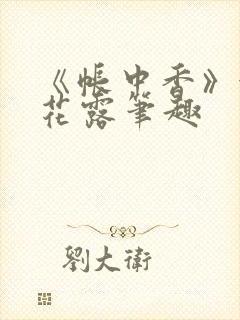 《帳中香》
花露筆趣
劉大衛